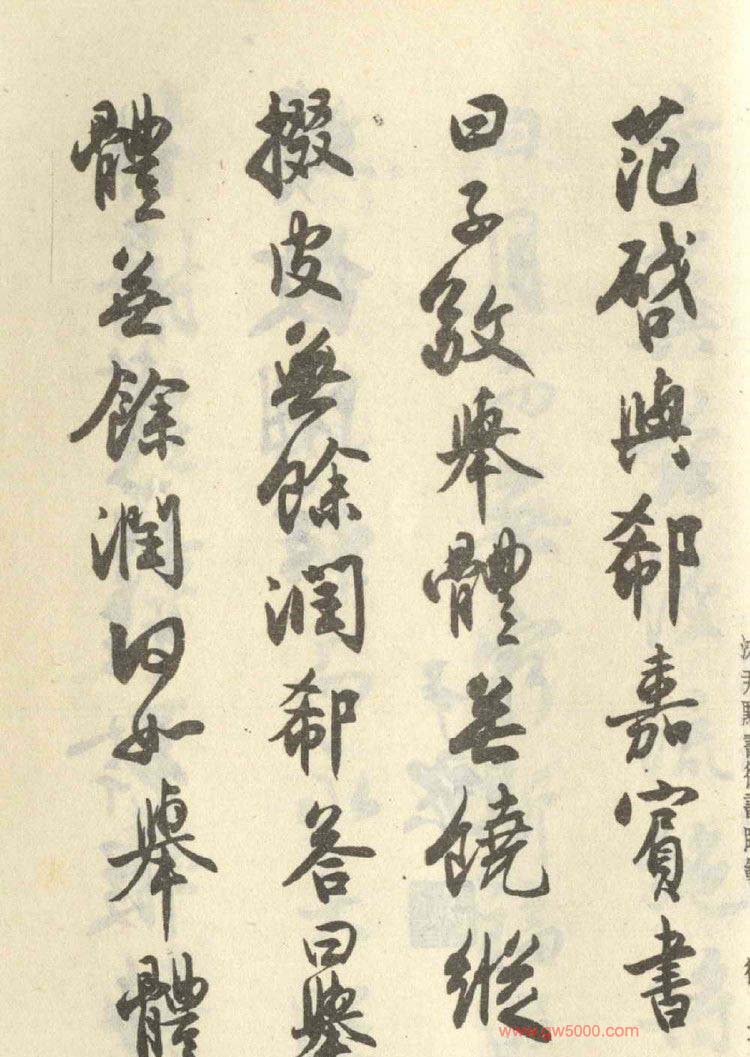 范啓與郗嘉賓書
曰子敬舉體無饒縱
掇皮無餘潤郗答曰舉
體無餘潤何如舉體
www.gw5000.com